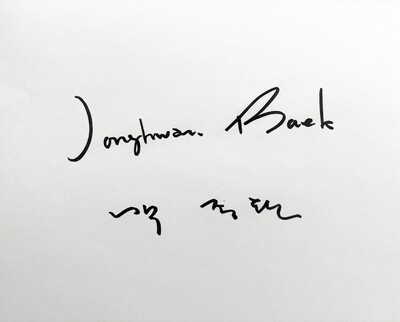 Jonghwan Baek
백 종환